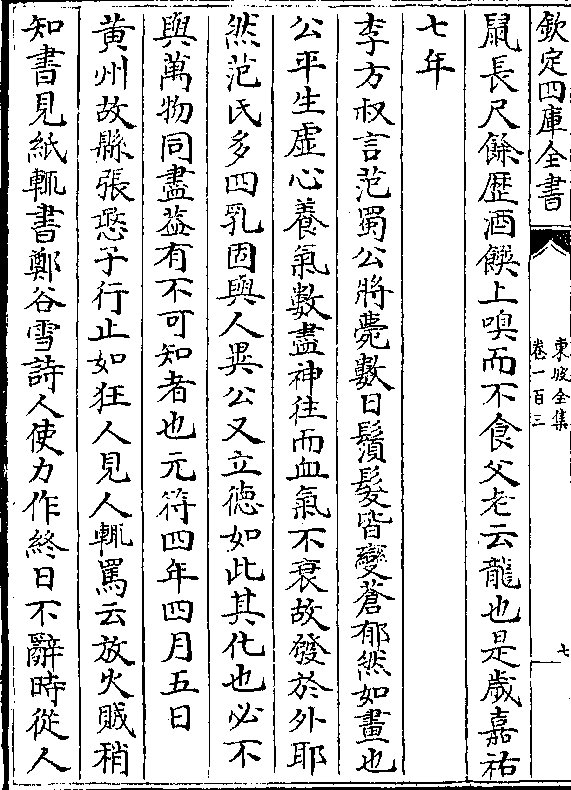 欽定四庫全書
東坡全集
卷一百三
七
鼠長尺餘歷酒饌上嗅而不食父老云龍也是歲嘉祐
七年
李方叔言范蜀公將薨數日鬚髮皆變蒼郁然如畫也
公平生虛心養氣數盡神往而血氣不衰故發於外耶
然范氏多四乳固與人異公又立德如此其化也必不
與萬物同盡葢有不可知者也元符四年四月五日
黃州故縣張憨子行止如狂人見人輒罵云放火賊稍
知書見紙輒書鄭谷雪詩人使力作終日不辭時從人